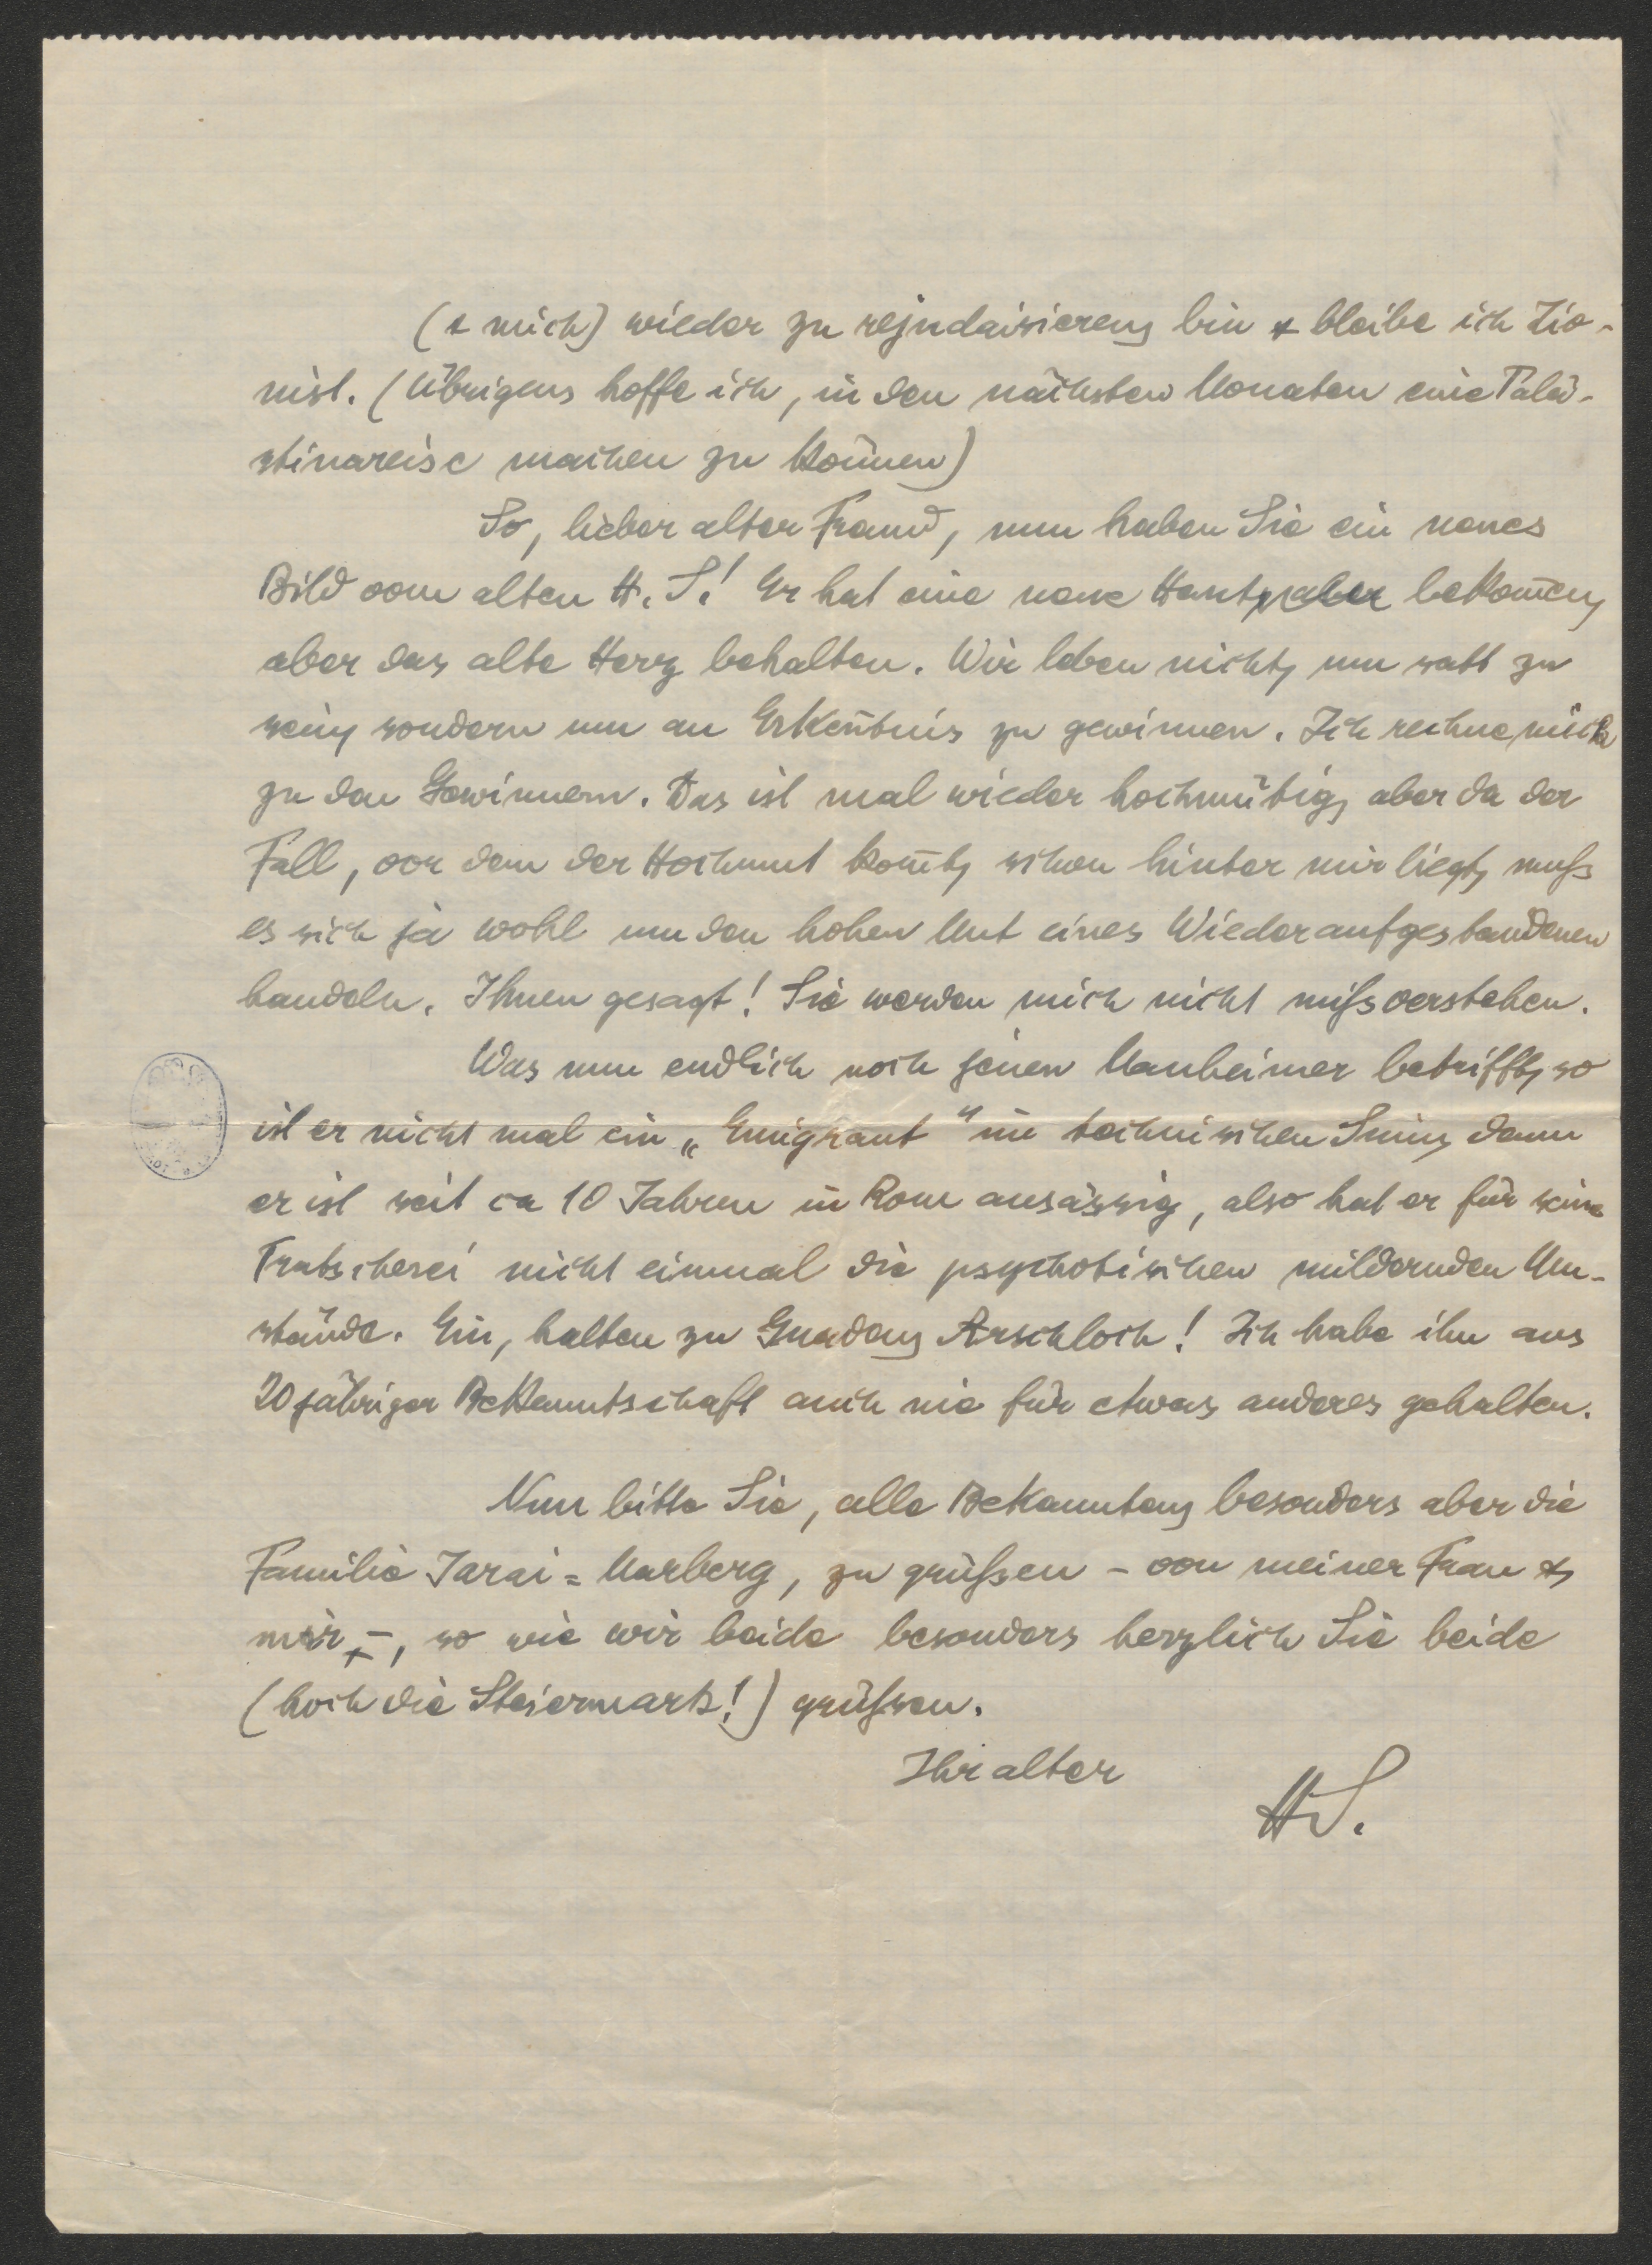 (& mich) wieder zu rejudaisieren, bin & bleibe ich Zio-
nist. (Übrigens hoffe ich, in den nächsten Monaten eine Palä-
stinareise machen zu können)
So, lieber alter Freund, nun haben Sie ein neues
Bild vom alten H. S.! Er hat eine neue Haut, aber bekommen,
aber das alte Herz behalten. Wir leben nicht, um satt zu
sein, sondern um an Erkenntnis zu gewinnen. Ich rechne mich
zu den Gewinnern. Das ist mal wieder hochmütig, aber da der
Fall, vor dem der Hochmut kommt, schon hinter mir liegt, muß
es sich ja wohl um den hohen Mut eines Wiederaufgestandenen
handeln. Ihnen gesagt! Sie werden mich nicht mißverstehen.
Was nun endlich noch jenen Manheimer betrifft, so
ist er nicht mal ein „Emigrant" im technischen Sinn, denn
er ist seit ca 10 Jahren in Rom ansässig, also hat er für seine
Tratscherei nicht einmal die psychotischen mildernden Um-
stände. Ein, halten zu Gnaden, Arschloch! Ich habe ihn aus
20 jähriger Bekanntschaft auch nie für etwas anderes gehalten.
Nun bitte Sie, alle Bekannten, besonders aber die
Familie Jarai = Marberg, zu grüßen – von meiner Frau &
mir –, so wie wir beide besonders herzlich Sie beide
(hoch die Steiermark!) grüßen.
Ihr alter
HS.